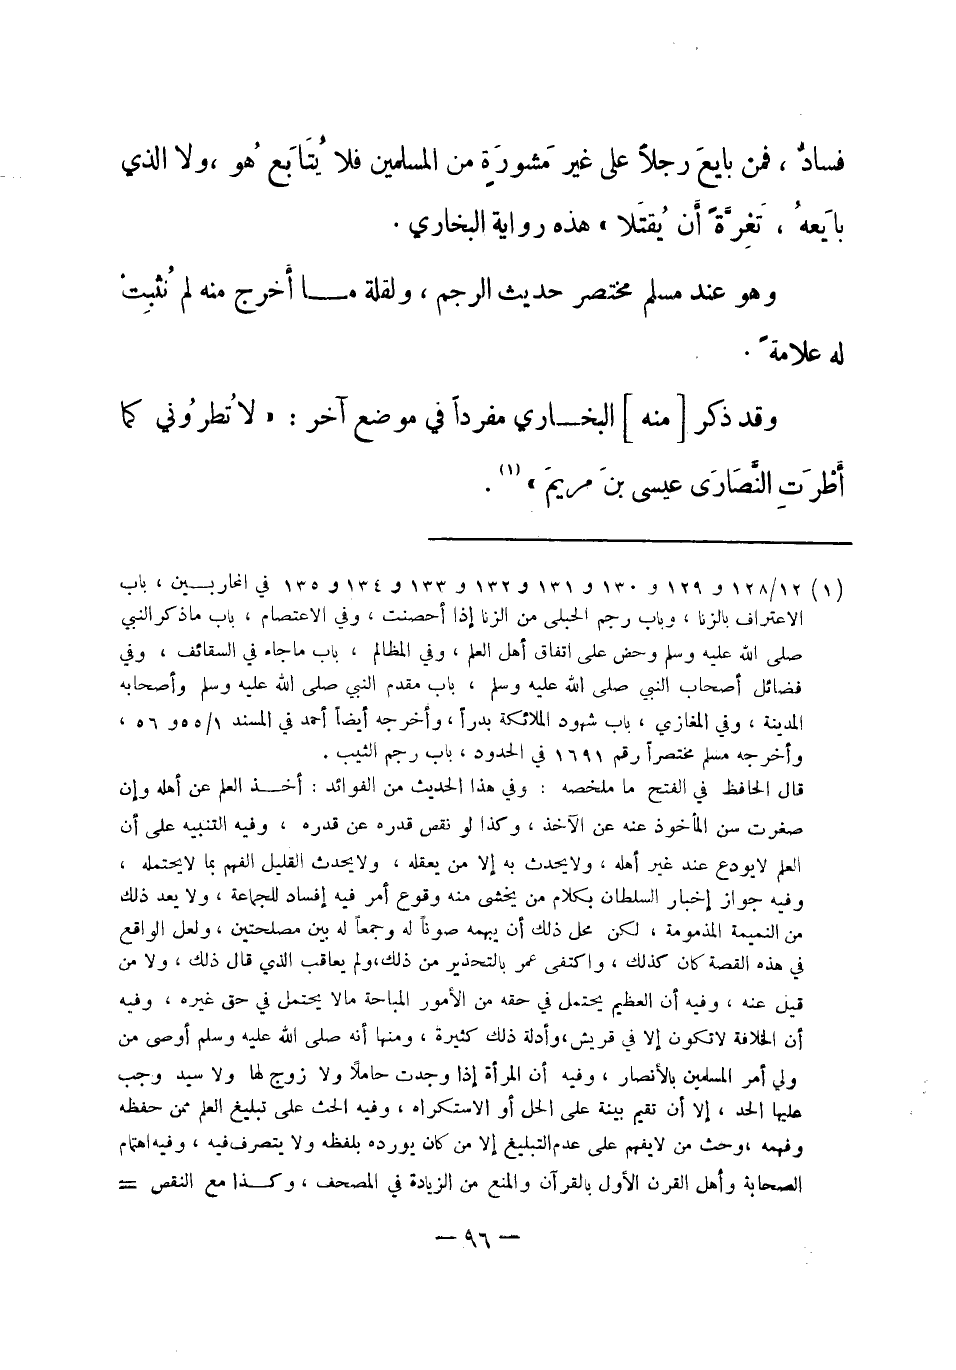 فسادٌ ، فمن بايعَ رجلاً على غير مَشورَةٍ من المسلمين فلا يُتَابَع هُو ،ولا الذي
بايَعهُ ، تَغِرَّةً أَن يُقتَلا » هذه رواية البخاري .
وهو عند مسلم مختصر حديث الرجم ، ولقلة مـــا أخرج منه لم نُثبِتْ
له علامةً .
وقد ذكر [ منه ] البخـــاري مفرداً في موضع آخر : « لا تُطرُوني كما
أَطْرَتِ النَّصَارَى عيسى بنَ مريمَ » (١) .
(١) ١٢٨/١٢ و ١٢٩ و ١٣٠ و ١٣١ و ١٣٢ و ١٣٣ و ١٣٤ و ١٣٥ في المحاربـــين ، باب
الاعتراف بالزنا ، وباب رجم الحبلى من الزنا إذا أحصنت ، وفي الاعتصام ، باب ماذكر النبي
صلى الله عليه وسلم وحض على اتفاق أهل العلم ، وفي المظالم ، باب ماجاء في السقائف ، وفي
فضائل أصحاب النبي صلى الله عليه وسلم ، باب مقدم النبي صلى الله عليه وسلم وأصحابه
المدينة ، وفي المغازي ، باب شهود الملائكة بدراً ، وأخرجه أيضاً أحمد في المسند ١/٥٥و ٥٦ ،
وأخرجه مسلم مختصراً رقم ١٦٩١ في الحدود ، باب رجم الثيب .
قال الحافظ في الفتح ما ملخصه : وفي هذا الحديث من الفوائد : أخـــذ العلم عن أهله وإن
صغرت سن المأخوذ عنه عن الآخذ ، وكذا لو نقص قدره عن قدره ، وفيه التنبيه على أن
العلم لايودع عند غير أهله ، ولايحدث به إلا من يعقله ، ولايحدث القليل الفهم بما لايحتمله ،
وفيه جواز إخبار السلطان بكلام من يخشى منه وقوع أمر فيه إفساد للجماعة ، ولا يعد ذلك
من النميمة المذمومة ، لكن محل ذلك أن يبهمه صوناً له وجمعاً له بين مصلحتين ، ولعل الواقع
في هذه القصة كان كذلك ، واكتفى عمر بالتحذير من ذلك،ولم يعاقب الذي قال ذلك ، ولا من
قيل عنه ، وفيه أن العظيم يحتمل في حقه من الأمور المباحة مالا يحتمل في حق غيره ، وفيه
أن الخلافة لاتكون إلا في قريش،وأدلة ذلك كثيرة ، ومنها أنه صلى الله عليه وسلم أوصى من
ولي أمر المسلمين بالأنصار ، وفيه أن المرأة إذا وجدت حاملاً ولا زوج لها ولا سيد وجب
عليها الحد ، إلا أن تقيم بينة على الحل أو الاستكراه ، وفيه الحث على تبليغ العلم ممن حفظه
وفهمه ،وحث من لايفهم على عدم التبليغ إلا من كان يورده بلفظه ولا يتصرف فيه ، وفيه اهتمام
الصحابة وأهل القرن الأول بالقرآن والمنع من الزيادة في المصحف ، وكـــذا مع النقص =
— ٩٦ —